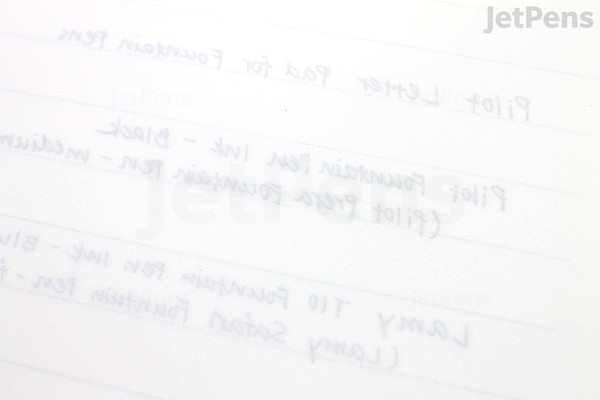 JetPens
Pilot Letter Pad for Fountain Pens
Pilot Fountain Pen Ink - Black
(Pilot Prera Fountain Pen - medium
Lamy T10 Fountain Pen Ink - Blu
(Lamy Safari Fountain Pen - f
JetPens
JetPens
JetPens
JetPens